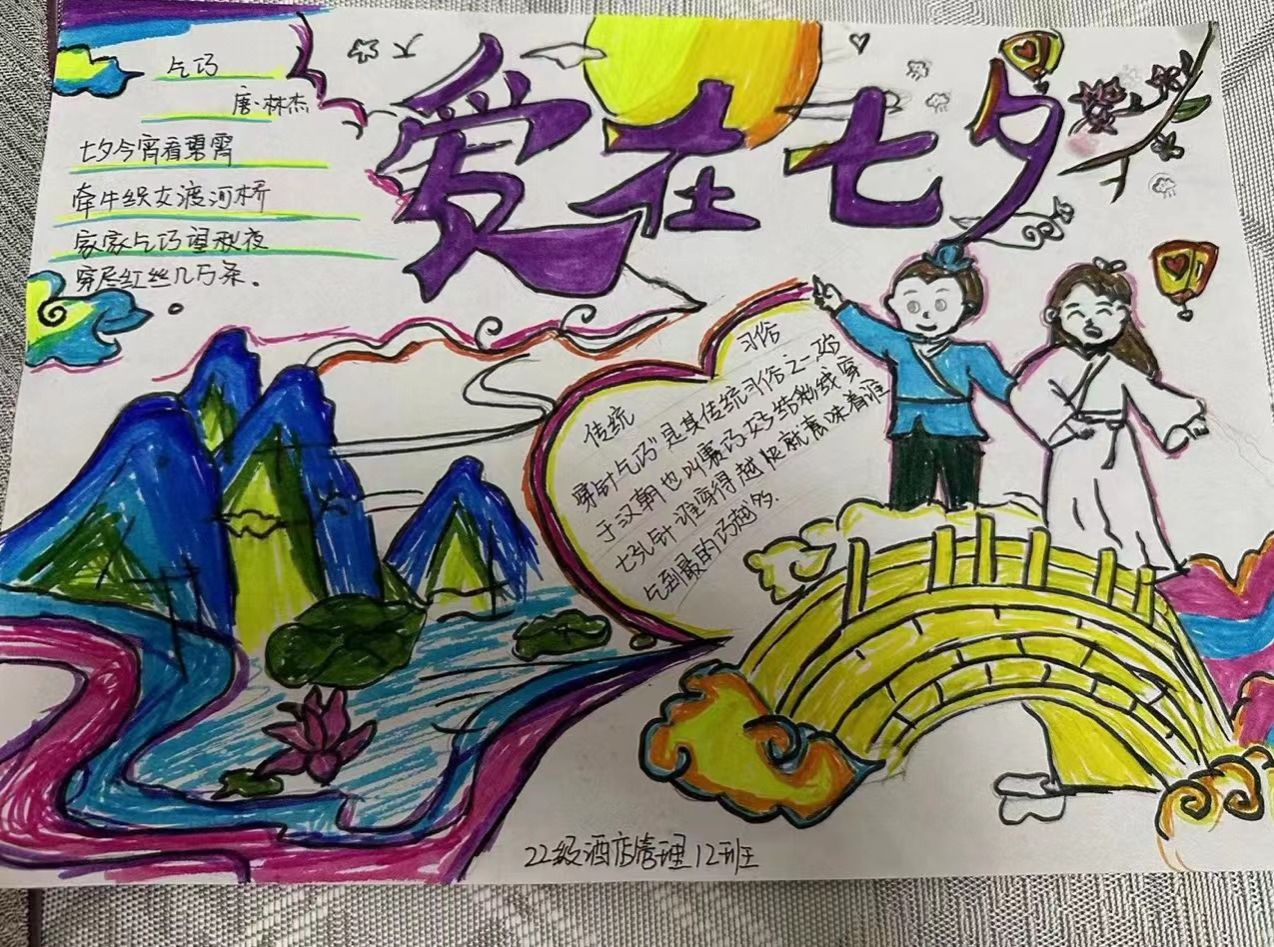 爱在七夕
乞巧
唐·林杰
七夕今宵看碧霄
牵牛织女渡河桥
家家乞巧望秋夜
穿尽红丝几万条。
传统
习俗
穿针乞巧"是其传统习俗之一始
于汉朝也叫赛巧,
结彩线穿
七孔针谁穿得越快就意味着谁
乞到最的巧越多.
22级酒店管理12班